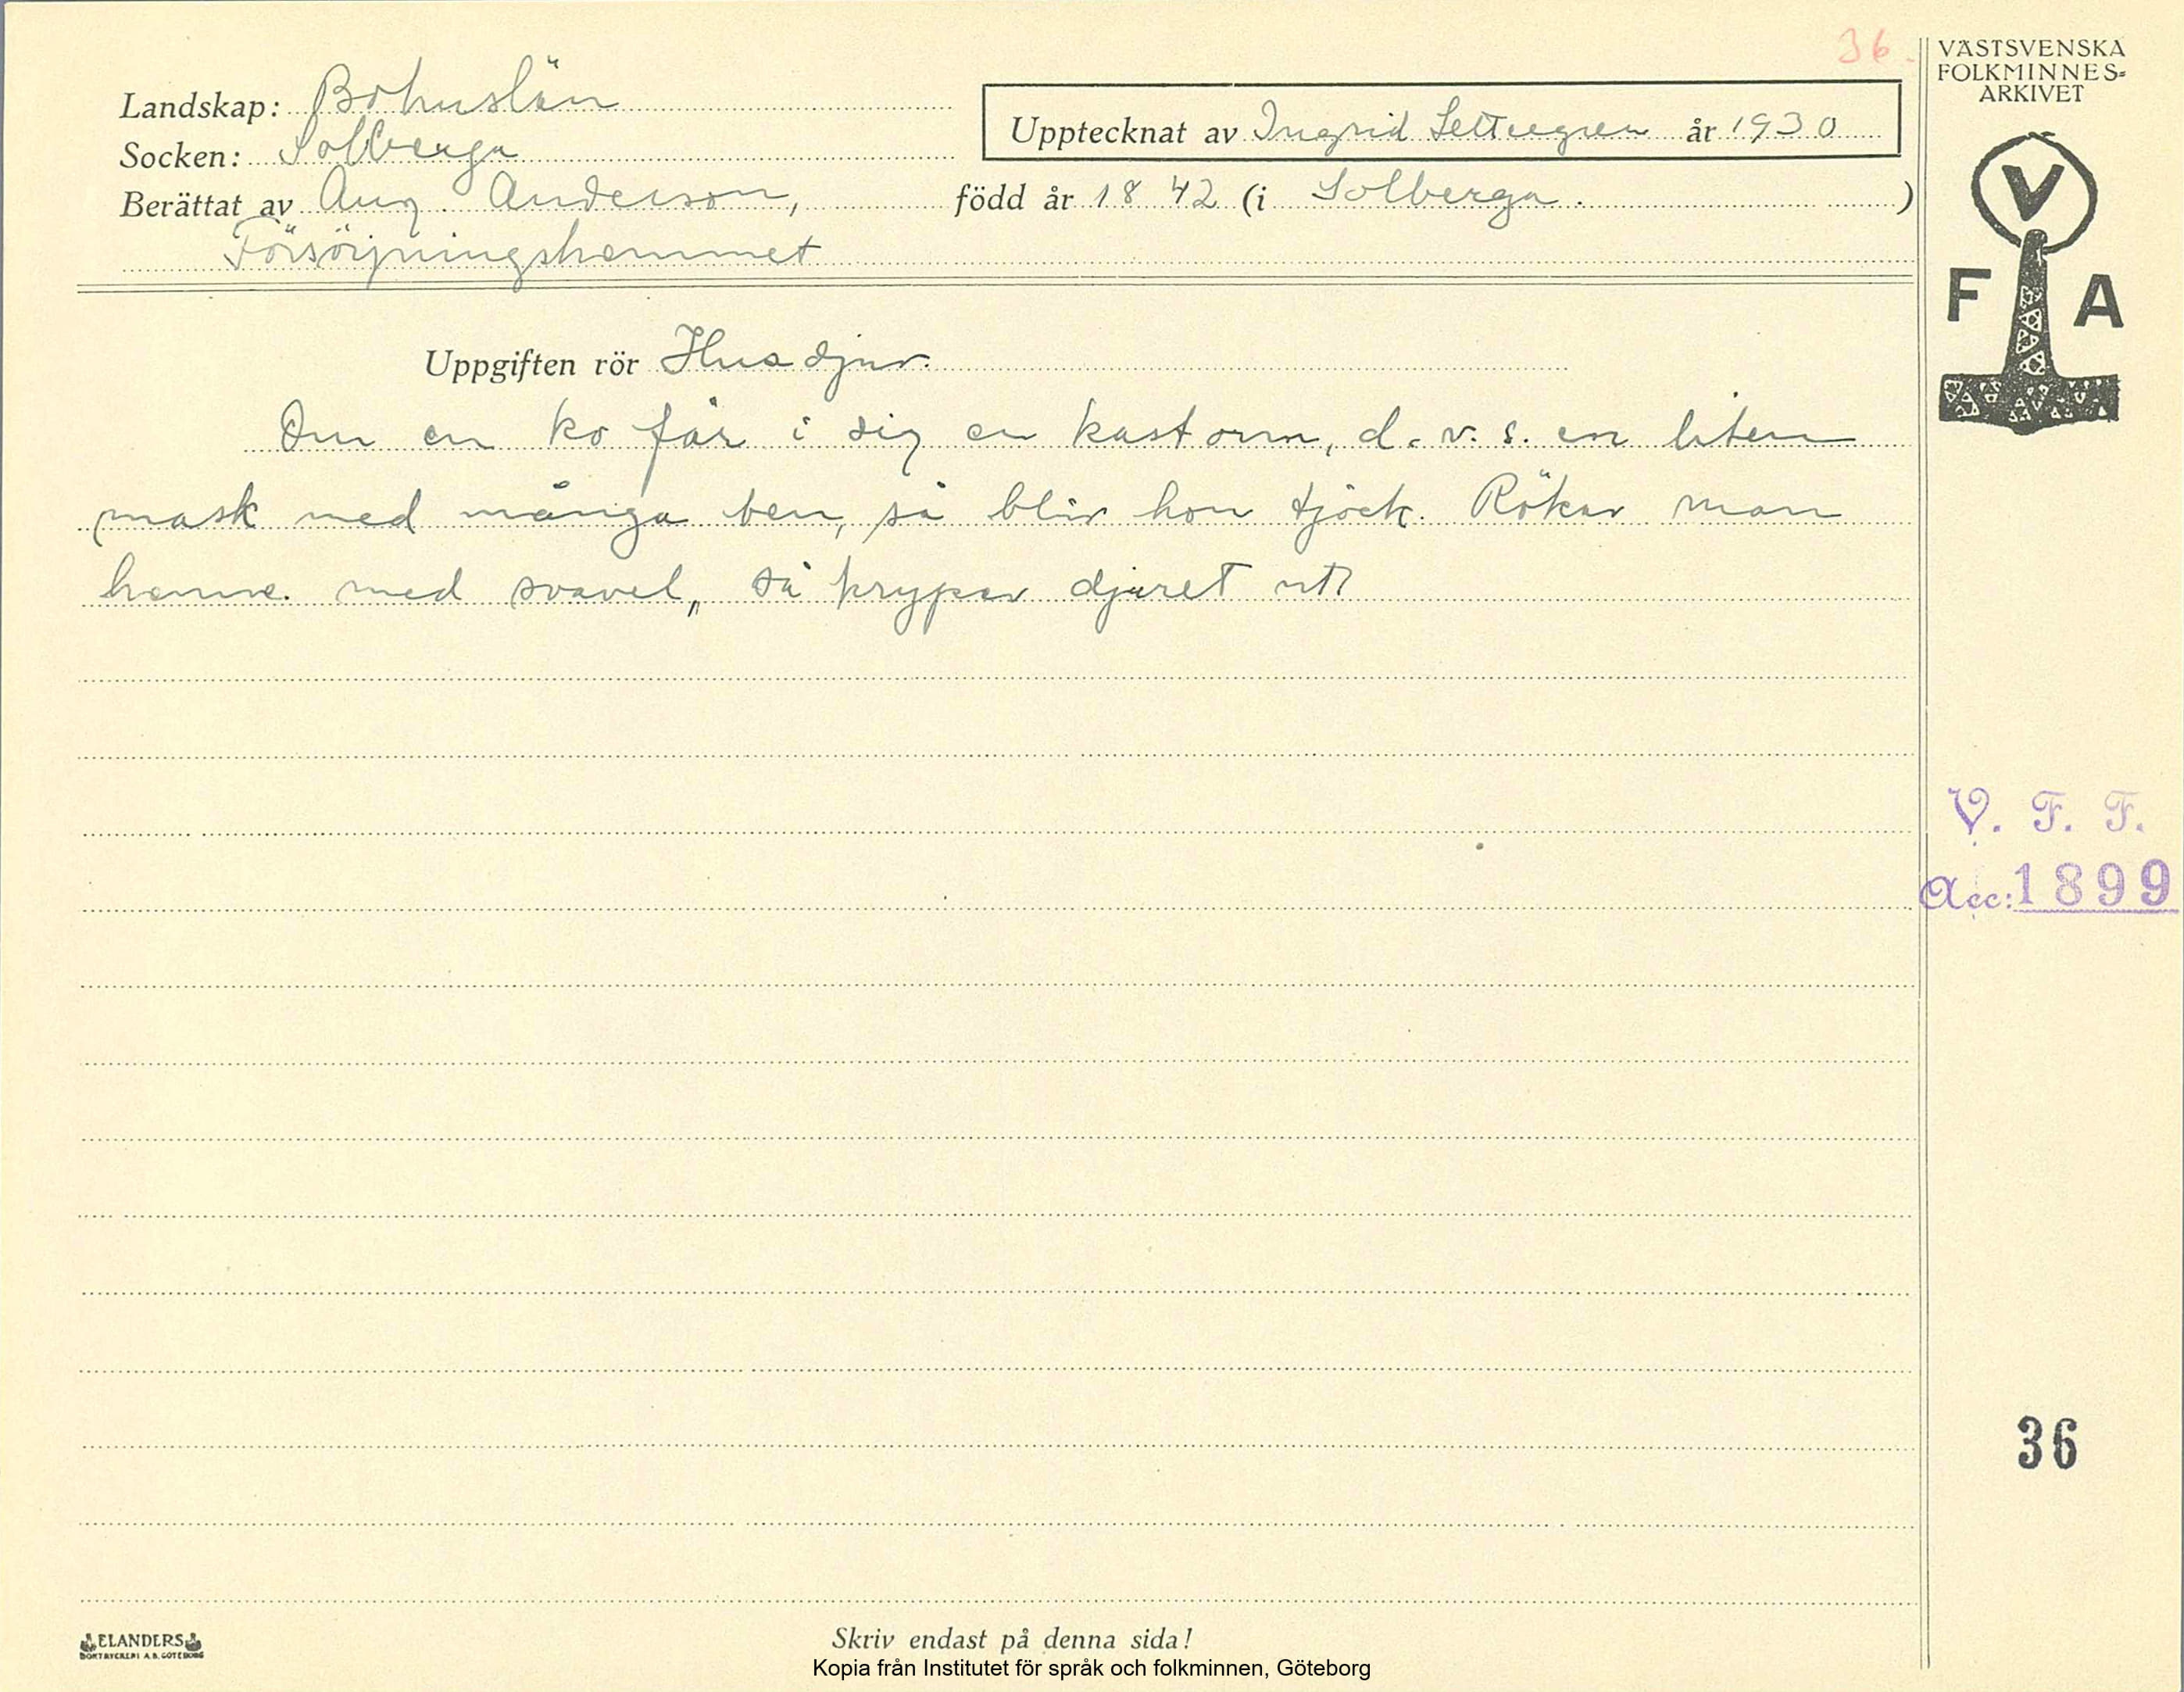 36.
VÄSTSVENSKA
FOLKMINNES-
ARKIVET
Landskap: Bohuslän
Upptecknat av Ingrid Settergren år 1930
Socken: Solberga
Berättat av Aug. Anderson, född år 1842 (i Solberga. )
Försörjningshemmet
V
F A
Uppgiften rör Husdjur.
Om en ko får i sig en kastorm, d.v.s. en liten
mask med många ben, så blir hon tjock. Röker man
henne. med svavel, så kryper djuret ut.
V. F. F.
Acc: 1899
36
ELANDERS
BOKTRYCKERI A.B. GÖTEBORG
Skriv endast på denna sida!
Kopia från Institutet för språk och folkminnen, Göteborg